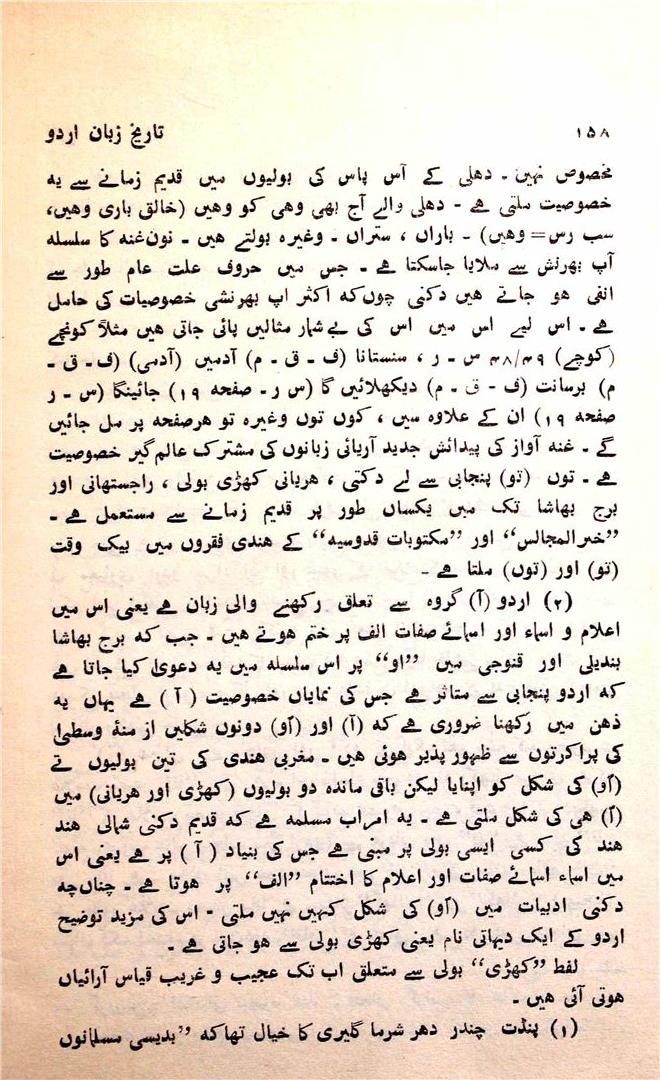 ۱۵۸
تاریخ زبان اردو
مخصوص نہیں ۔ دھلی کے آس پاس کی بولیوں میں قدیم زمانے سے یہ
خصوصیت ملتی ہے ۔ دھلی والے آج بھی وھی کو وھیں (خالق باری وھیں،
سب رس=وھیں) ۔ باراں ، ستراں ۔ وغیرہ بولتے ھیں ۔ نون غنہ کا سلسلہ
آپ بھرنش سے ملایا جاسکتا ہے ۔ جس میں حروف علت عام طور سے
انفی ھو جاتے ھیں دکنی چوں کہ اکثر اپ بھرنشی خصوصیات کی حامل
ہے ۔ اس لیے اس میں اس کی بے شمار مثالیں پائی جاتی ھیں مثلاً کونچے
(کوچے) ۴۸/۴۹ س ۔ ر ، سنستانا (ف ۔ ق ۔ م) آدمیں (آدمی) (ف ۔ ق ۔
م) برسانت (ف ۔ ق ۔ م) دیکھلائیں گا (س ر ۔ صفحہ ۱۹) جائینگا (س ۔ ر
صفحہ ۱۹) ان کے علاوہ میں ، کوں توں وغیرہ تو ھر صفحہ پر مل جائیں
گے ۔ غنہ آواز کی پیدائش جدید آریائی زبانوں کی مشترک عالم گیر خصوصیت
ہے ۔ توں (تو) پنجابی سے لے دکنی ، ھریانی کھڑی بولی ، راجستھانی اور
برج بھاشا تک میں یکساں طور پر قدیم زمانے سے مستعمل ہے ۔
”خیرالمجالس“ اور ”مکتوبات قدوسیہ“ کے ھندی فقروں میں بیک وقت
(تو) اور (توں) ملتا ہے ۔
(۲) اردو (آ) گروہ سے تعلق رکھنے والی زبان ہے یعنی اس میں
اعلام و اسماء اور اسمائے صفات الف پر ختم ھوتے ھیں ۔ جب کہ برج بھاشا
بندیلی اور قنوجی میں ”او“ پر اس سلسلہ میں یہ دعویٰ کیا جاتا ہے
کہ اردو پنجابی سے متاثر ہے جس کی نمایاں خصوصیت (آ) ہے یہاں یہ
ذھن میں رکھنا ضروری ہے کہ (آ) اور (آو) دونوں شکلیں از منۂ وسطیٰ
کی پراکرتوں سے ظہور پذیر ھوئی ھیں ۔ مغربی ھندی کی تین بولیوں نے
(آو) کی شکل کو اپنایا لیکن باقی ماندہ دو بولیوں (کھڑی اور ھریانی) میں
(آ) ھی کی شکل ملتی ہے ۔ یہ امر اب مسلمہ ہے کہ قدیم دکنی شمالی ھند
ھند کی کسی ایسی بولی پر مبنی ہے جس کی بنیاد (آ) پر ہے یعنی اس
میں اسماء اسمائے صفات اور اعلام کا اختتام ”الف“ پر ھوتا ہے ۔ چناں چہ
دکنی ادبیات میں (آو) کی شکل کہیں نہیں ملتی ۔ اس کی مزید توضیح
اردو کے ایک دیہاتی نام یعنی کھڑی بولی سے ھو جاتی ہے ۔
لفظ ”کھڑی“ بولی سے متعلق اب تک عجیب و غریب قیاس آرائیاں
ھوتی آئی ھیں ۔
(۱) پنڈت چندر دھر شرما گلیری کا خیال تھا کہ ”بدیسی مسلمانوں